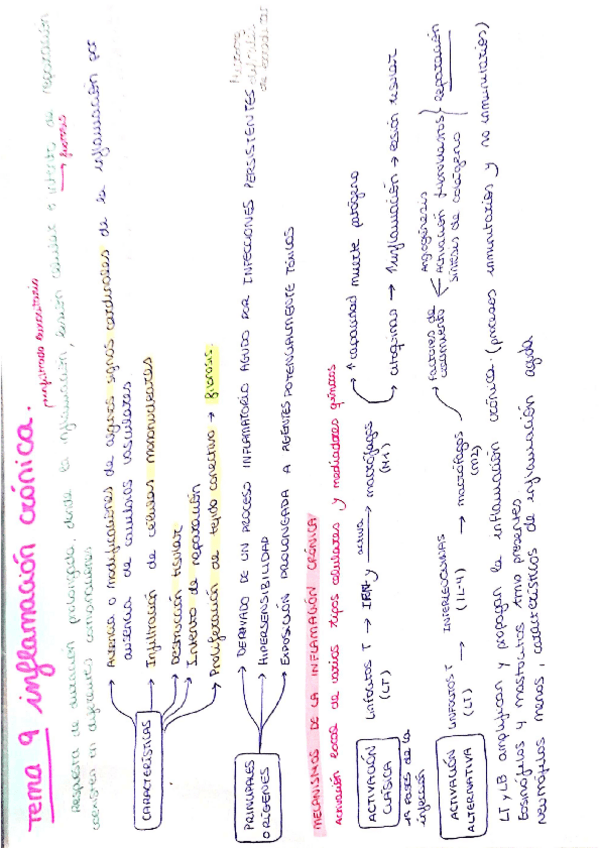 Tema 9 inflamación crónica.
infiltrado
Respuesta de duración prolongada, donde la inflamación, lesión celular e intento de reparación
→ fibrosis
coexisten en diferentes combinaciones
CARACTERÍSTICAS
→ Ausencia o modificaciones de algunos signos cardinales de la inflamación por
ausencia de cambios vasculares
→ Infiltración de células mononucleares
→ Destrucción tisular
→ Intento de reparación
→ Proliferación de tejido conectivo → fibrosis.
PRINCIPALES
ORÍGENES
→ DERIVADO DE UN PROCESO INFLAMATORIO AGUDO POR INFECCIONES PERSISTENTES
→ HIPERSENSIBILIDAD
→ EXPOSICIÓN PROLONGADA A AGENTES POTENCIALMENTE TÓXICOS
MECANISMOS DE LA INFLAMACIÓN CRÓNICA
Activación local de varios tipos celulares y mediadores químicos
ACTIVACIÓN
CLÁSICA
1ª fases de la
infección
Linfocitos T → IFN-γ activa → macrófagos
(LT) (M1)
↑ capacidad muerte patógeno
citoquinas → ↑ inflamación → lesión tisular
ACTIVACIÓN
ALTERNATIVA
LINFOCITOS T → INTERLEUCINAS → macrófagos
(LT) (IL-4) (M2)
Factores de
crecimiento
Angiogénesis
Activación fibroblastos
síntesis de colágeno
reparación
LT y LB amplifican y propagan la inflamación crónica. (procesos inmunitarios y no inmunitarios)
Eosinófilos y mastocitos tmb presentes
Neutrófilos menos, característicos de inflamación aguda